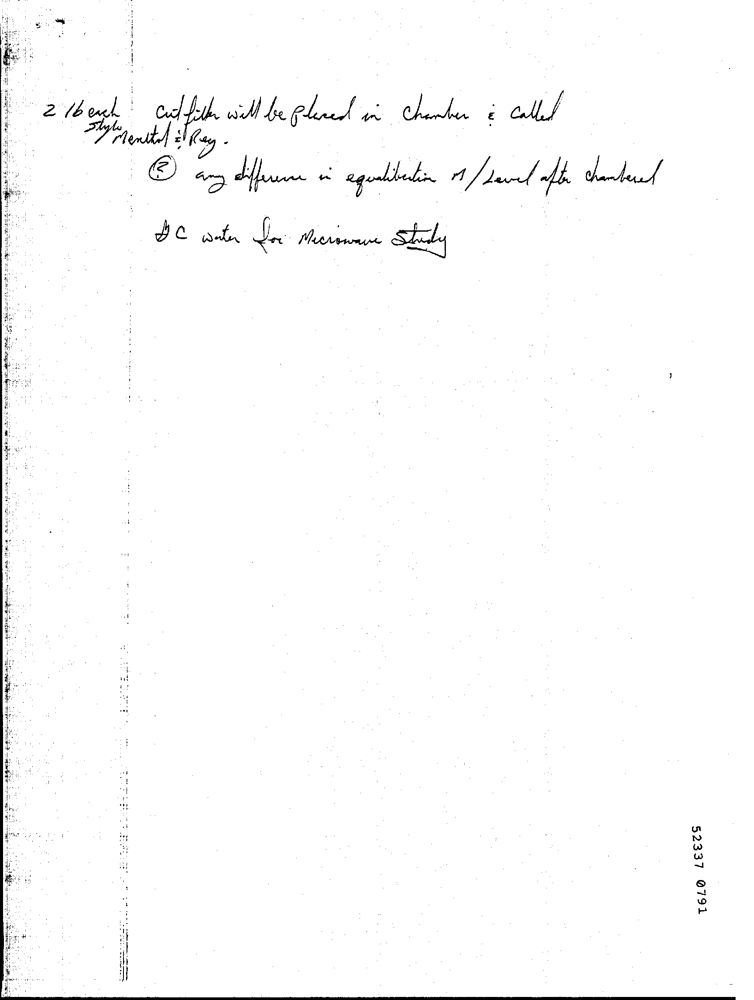 2 lb each cut filler will be placed in chamber & called
Style Menthol & Reg.
? any difference in equalibration M/Level after chambered
DC water for Microwave Study
52337 0791